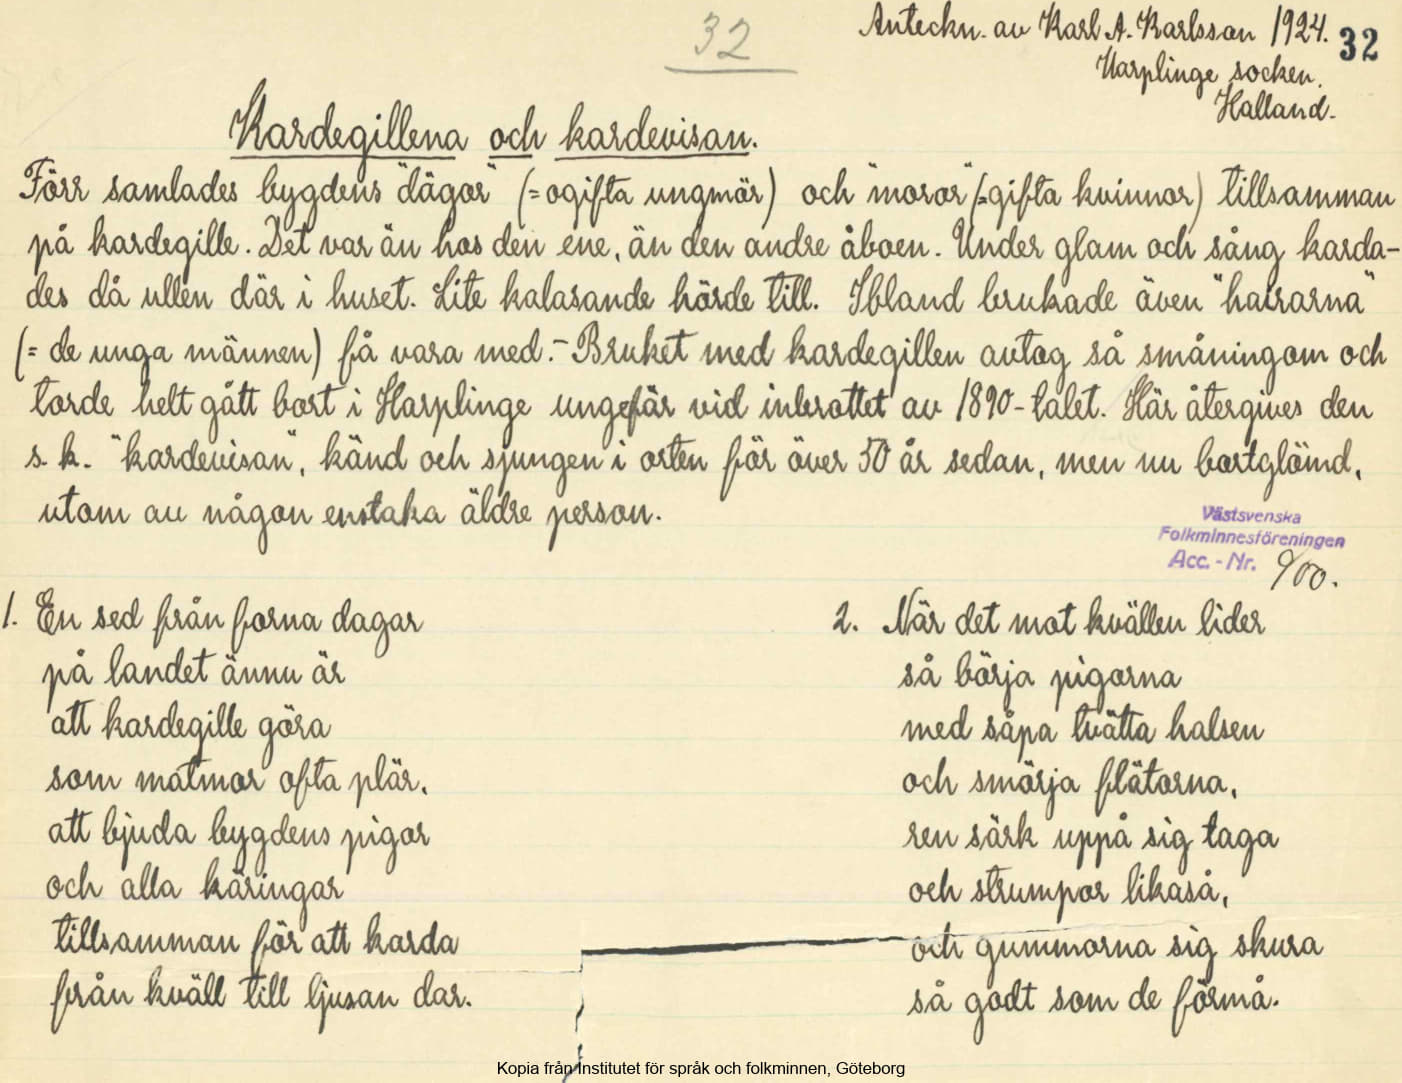 32
Anteckn. av Karl A. Karlsson 1924.
32
Harplinge socken.
Halland.
Kardegillena och kardevisan.
Förr samlades bygdens "dägor" (= ogifta ungmör) och "moror" (= gifta kvinnor) tillsamman
på kardegille. Det var än hos den ene, än den andre åboen. Under glam och sång karda-
des då ullen där i huset. Lite kalasande hörde till. Ibland brukade även "hararna"
(= de unga männen) få vara med. – Bruket med kardegillen avtog så småningom och
torde helt gått bort i Harplinge ungefär vid inbrottet av 1890-talet. Här återgives den
s. k. "kardevisan", känd och sjungen i orten för över 50 år sedan, men nu bortglömd,
utom av någon enstaka äldre person.
Västsvenska
Folkminnesföreningen
Acc. - Nr. 900.
1. En sed från forna dagar
på landet ännu är
att kardegille göra
som matmor ofta plär,
att bjuda bygdens pigor
och alla käringar
tillsamman för att karda
från kväll till ljusan dar.
2. När det mot kvällen lider
så börja pigorna
med såpa tvätta halsen
och smörja flätorna,
ren särk uppå sig taga
och strumpor likaså,
och gummorna sig skura
så godt som de förmå.
Kopia från Institutet för språk och folkminnen, Göteborg